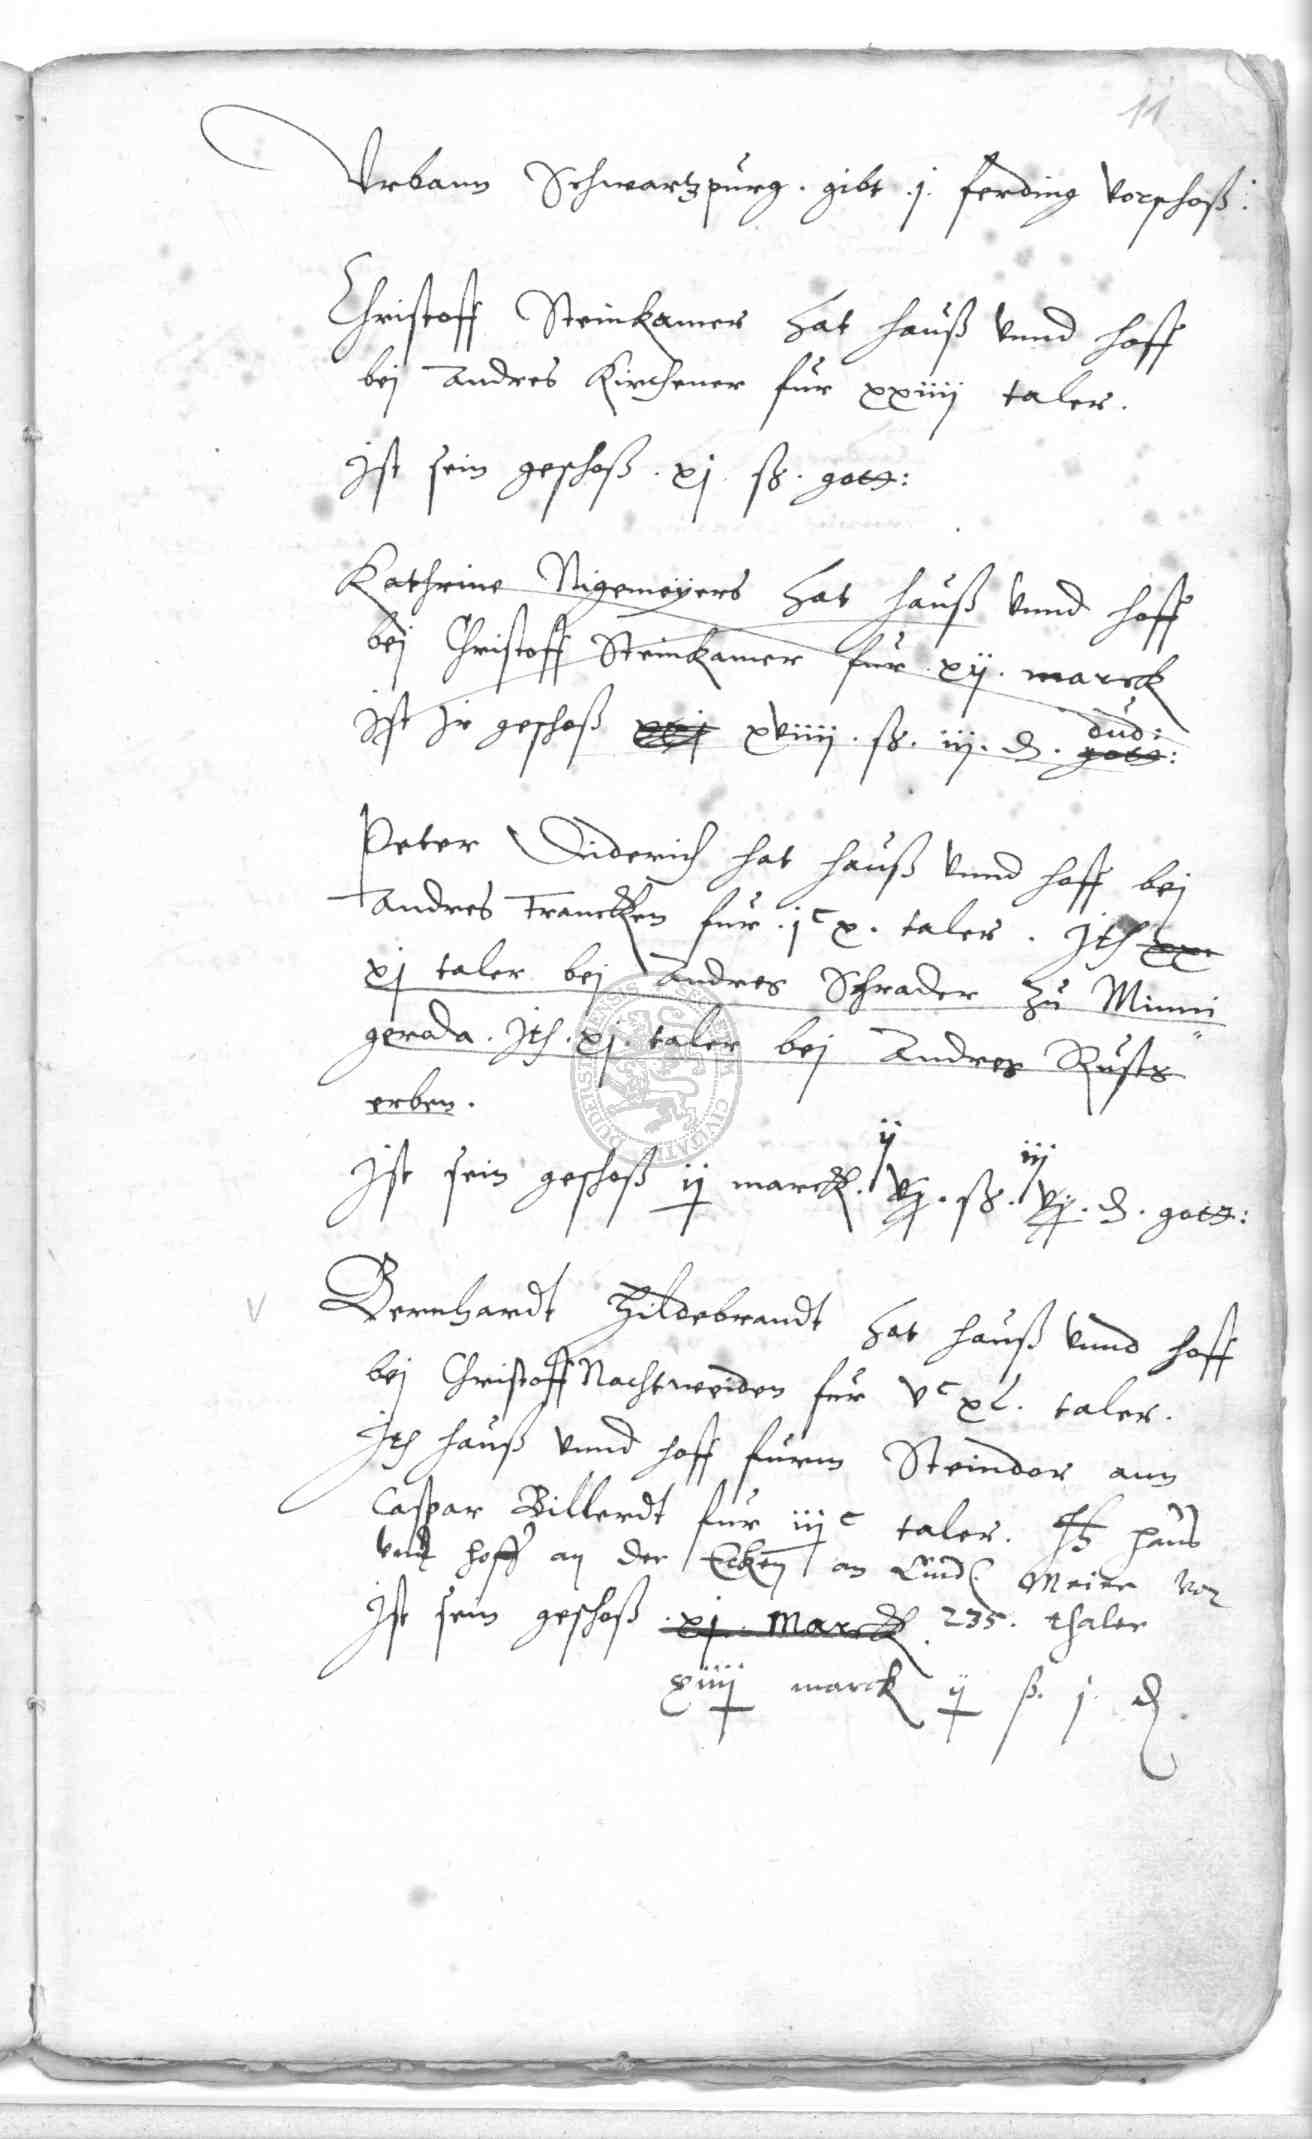 11
Urbann Schwartzpurg . gibt .j. ferding vorschoß :
Christoff Steinkamer hat hauß vnnd hoff
bej Andres Kirchener fur xxiiij taler .
Jst sein geschoß . xj . ß . gott :
Kathrine Nigemeÿers hat hauß vnnd hoff
bej Christoff Steinkamer fur . xij . marck
Jst Jr geschoß xviiij . ß . iij . d . dud :
gott :
Peter Diderich hat hauß vnnd hoff bej
Andres Francken fur . jc x . taler . Jth xx
xj taler bej Andres Schrader zu Minni
gerada . Jth . xj . taler bej Andres Rusts
erben .
ij iij
Jst sein geschoß ij marck . vj . ß . vj . d . gott :
V Bernhardt Hildebrandt hat hauß vnnd hoff
bej Christoff Nachtweiden fur vc xl . taler .
Jth hauß vnnd hoff furm Steindor ann
Caspar Billerdt fur iijc taler . Jth haus
vnd hoff an der Ecken an Lud. Meier vor
Jst sein geschoß . xj . Marck . 235 . thaler
xiiij marck ij ß . j . d .
SIGILLUM CIVITATIS DUDERSTADENSIS